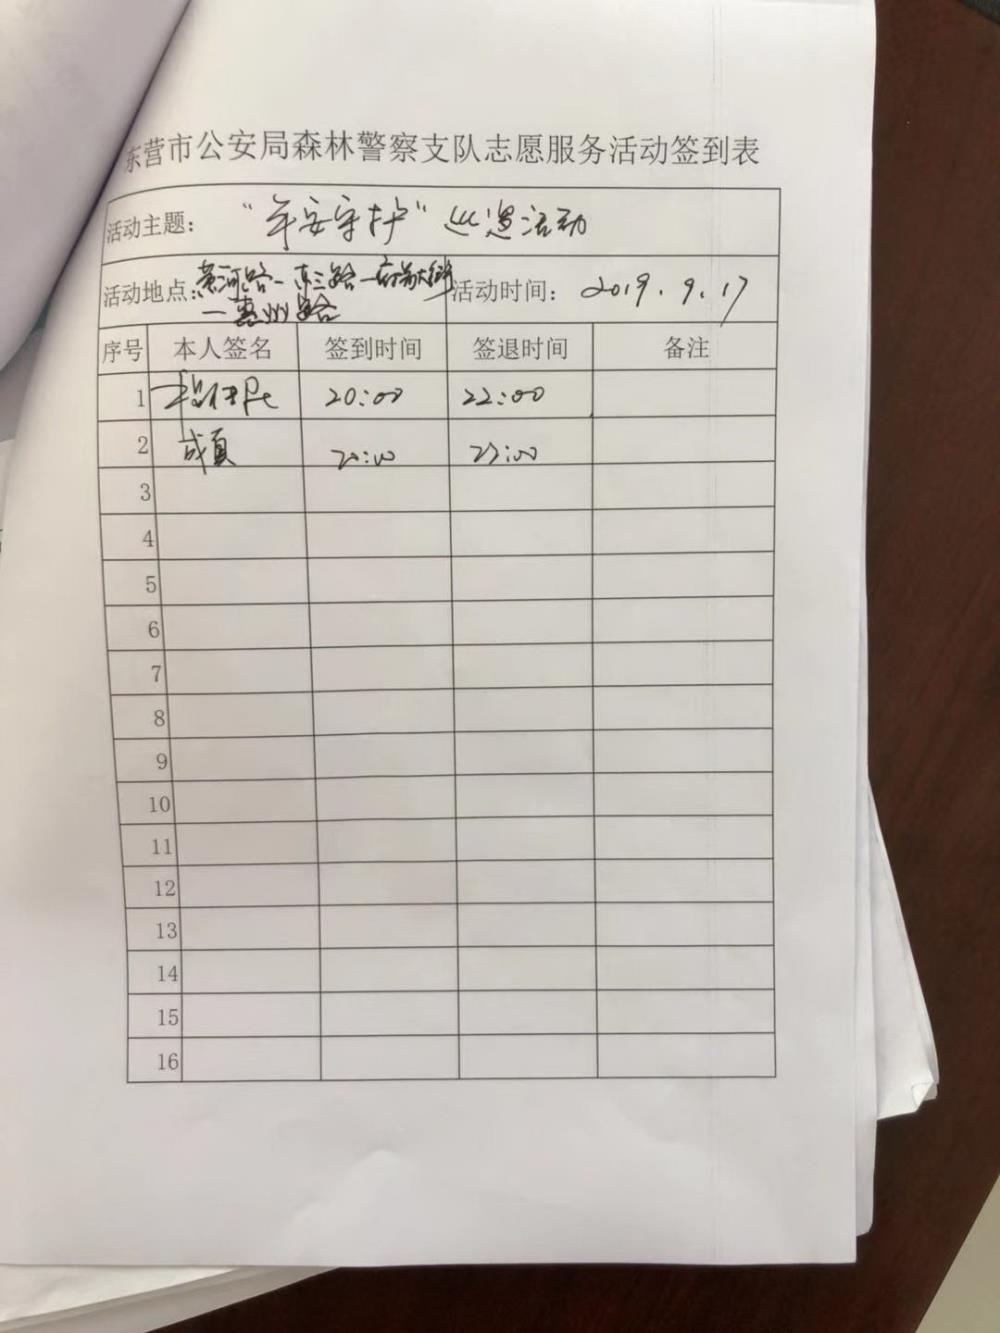 东营市公安局森林警察支队志愿服务活动签到表
活动主题： “平安守护”巡逻活动
活动地点：黄河路－东三路－府前大街 活动时间： 2019.9.17
－惠州路
序号 本人签名 签到时间 签退时间 备注
1 20:00 22:00
2 成真 20:00 22:00
3
4
5
6
7
8
9
10
11
12
13
14
15
16